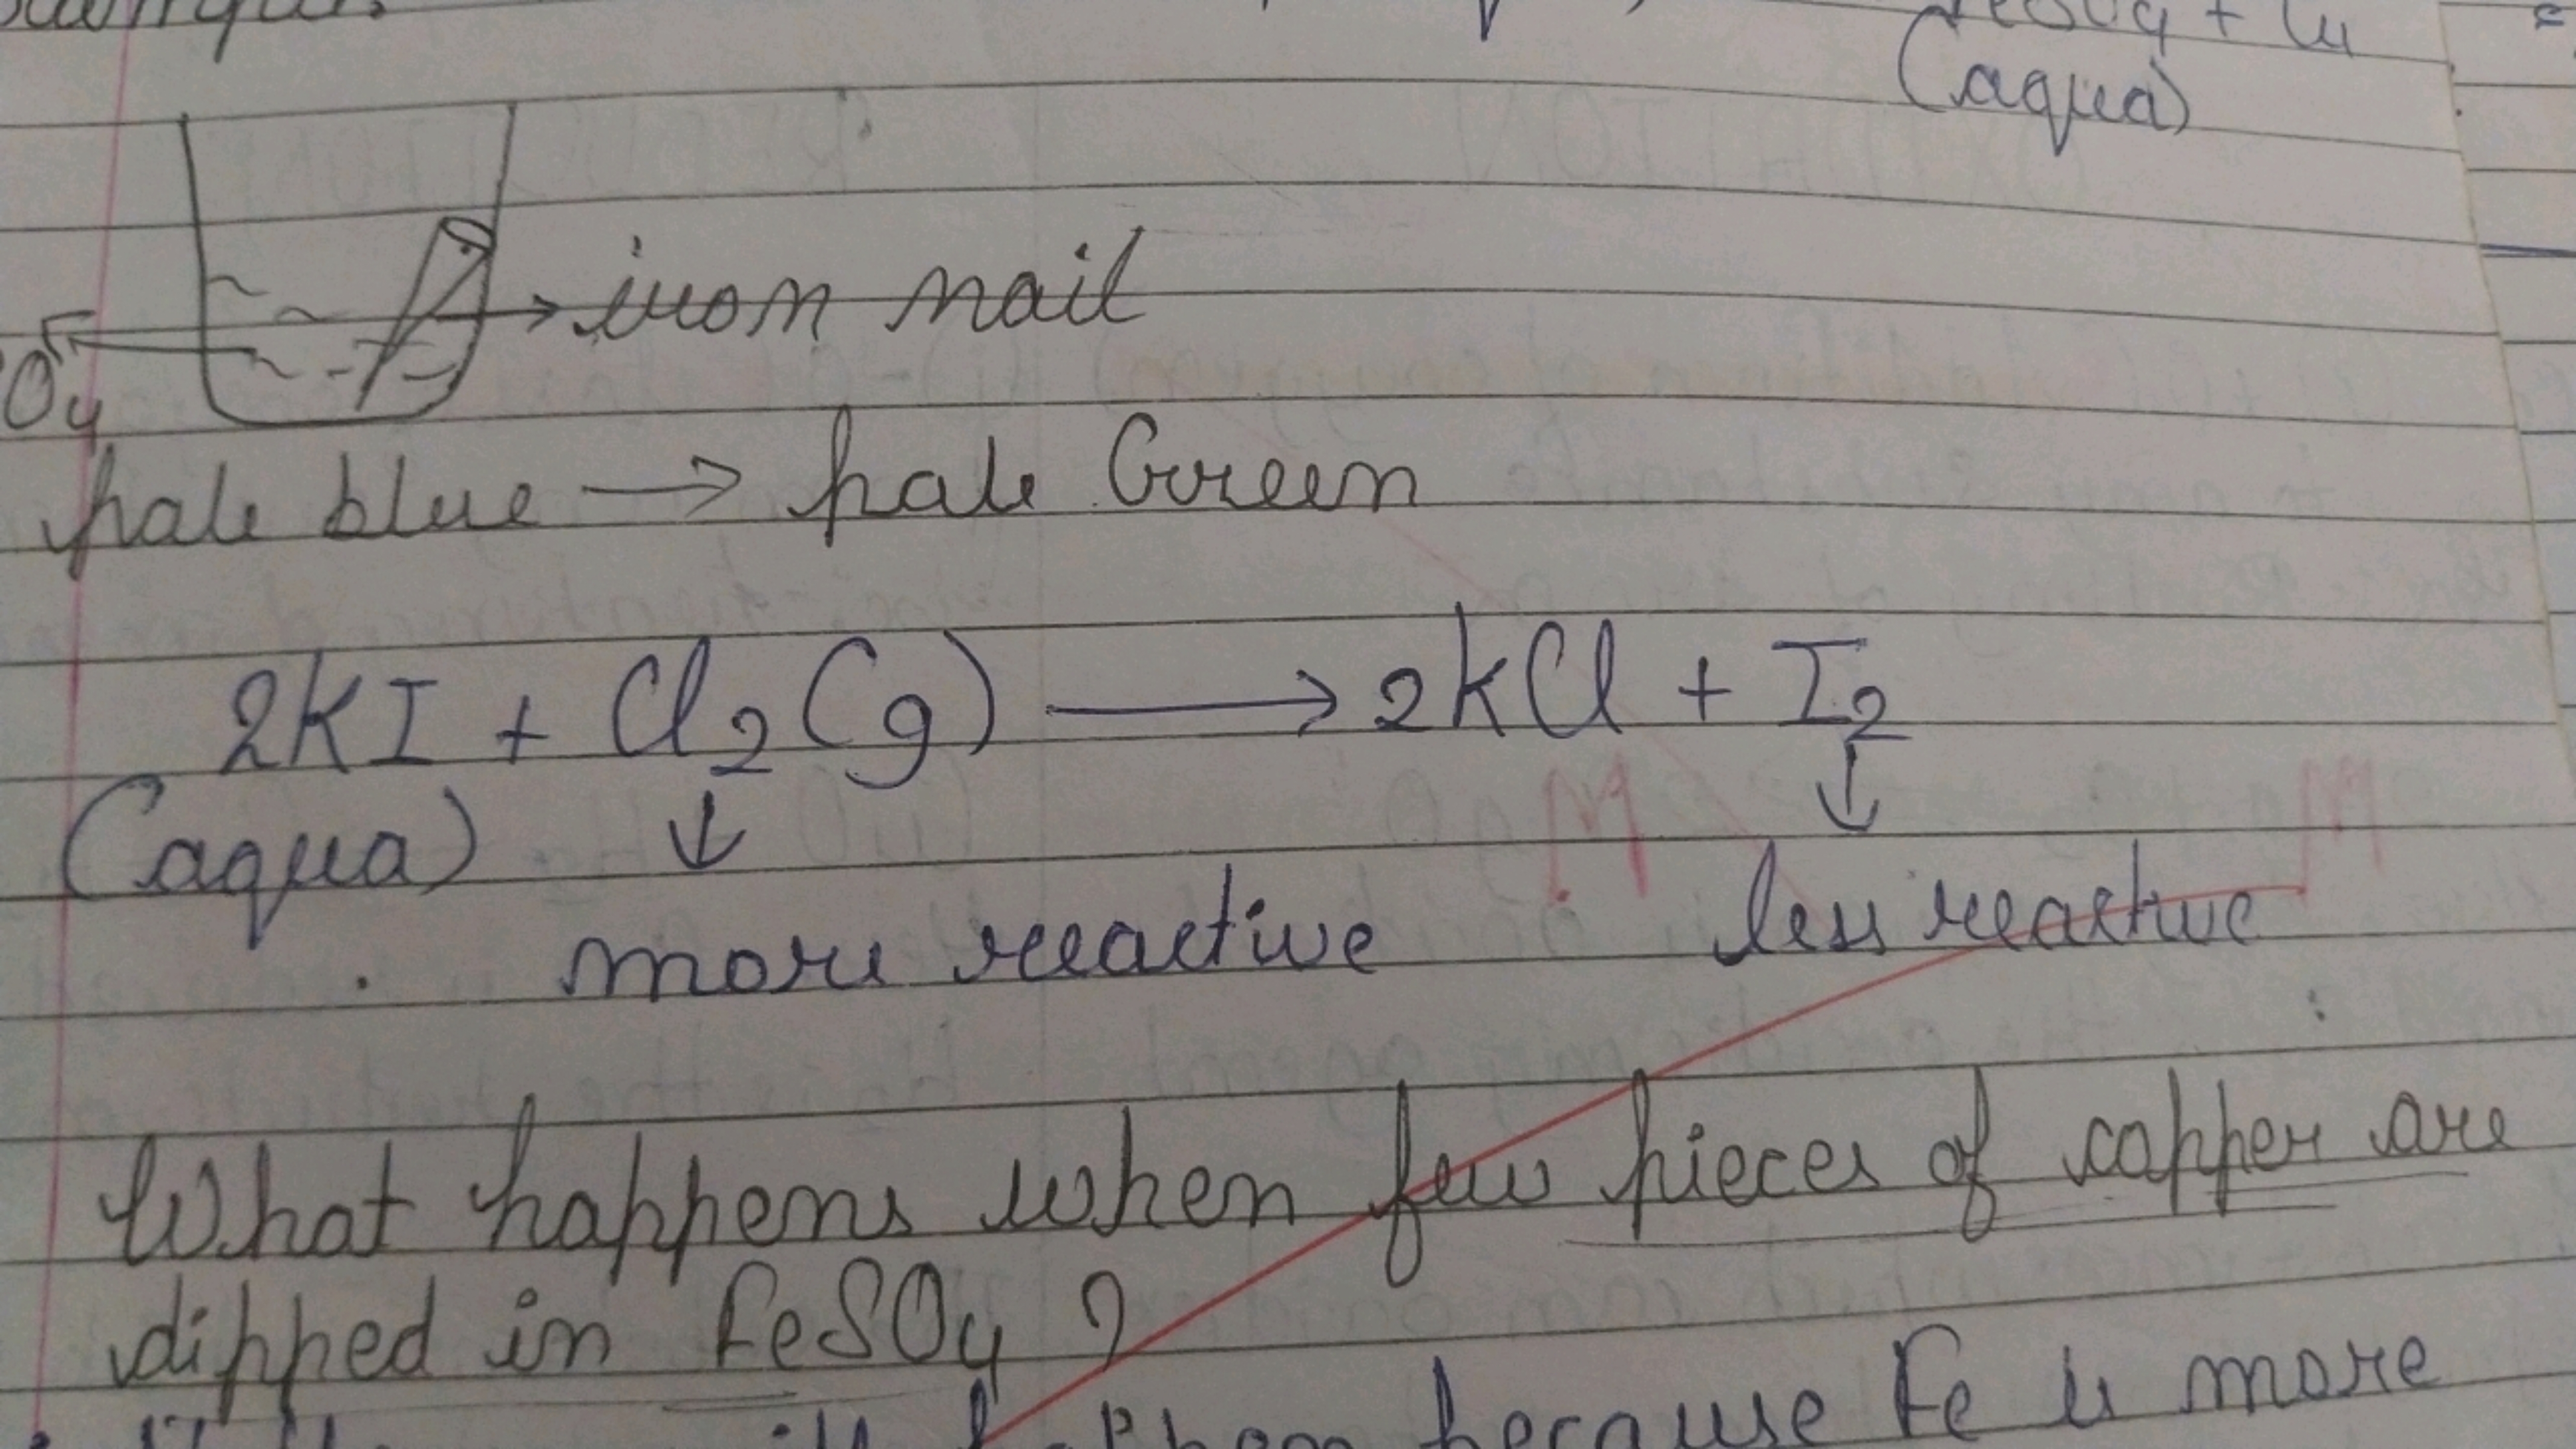 + Cu
(aqua)
→ iron nail
O4
pale blue → pale Green
2KI + Cl2(g) → 2KCl + I2
(aqua) ↓ ↓
more reactive less reactive
What happens when few pieces of copper are
dipped in FeSO4 ?
because Fe is more